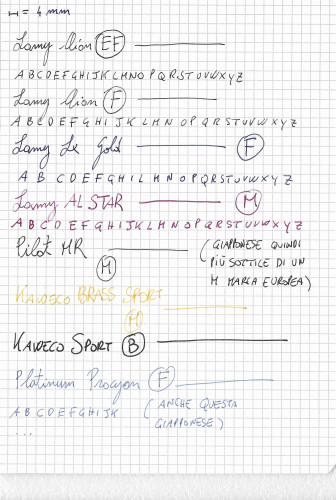 = 4 mm
Lamy Aion EF
A B C D E F G H I J K L M N O P Q R S T U V W X Y Z
Lamy Aion F
A B C D E F G H I J K L M N O P Q R S T U V W X Y Z
Lamy Le Gold F
A B C D E F G H I L M N O P Q R S T U V W X Y Z
Lamy AL STAR M
A B C D E F G H I J K L M N O P Q R S T U V W X Y Z
Pilot MR (GIAPPONESE QUINDI
M PIÙ SOTTILE DI UN
M MARCA EUROPEA)
KAWECO BRASS SPORT
M
KAWECO SPORT B
Platinum Procyon F
A B C D E F G H I J K (ANCHE QUESTA
... GIAPPONESE)